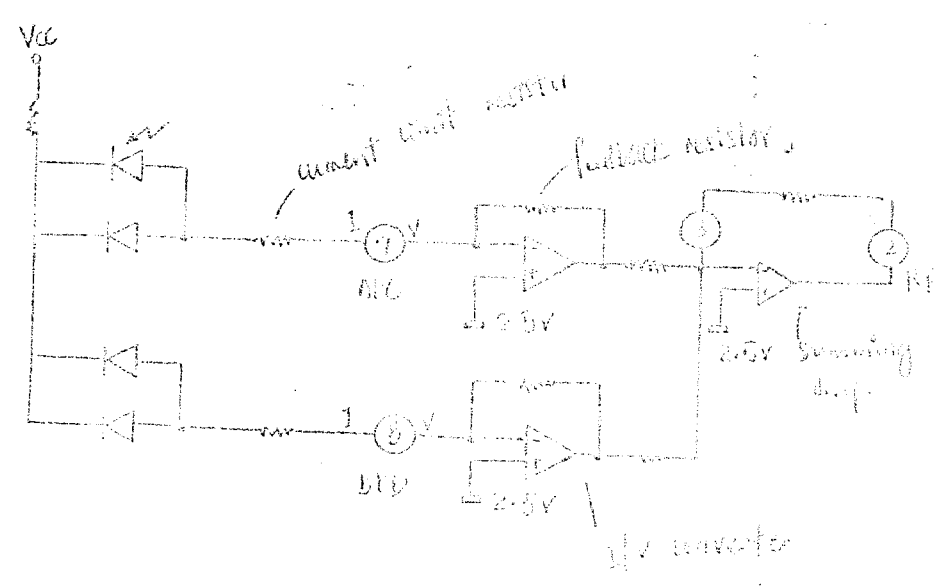 Vcc
current limit resistor
feedback resistor
I
7
V
3
2
RF
2.5V
2.5V
Summing
I
8
V
2.5V
I/V converter